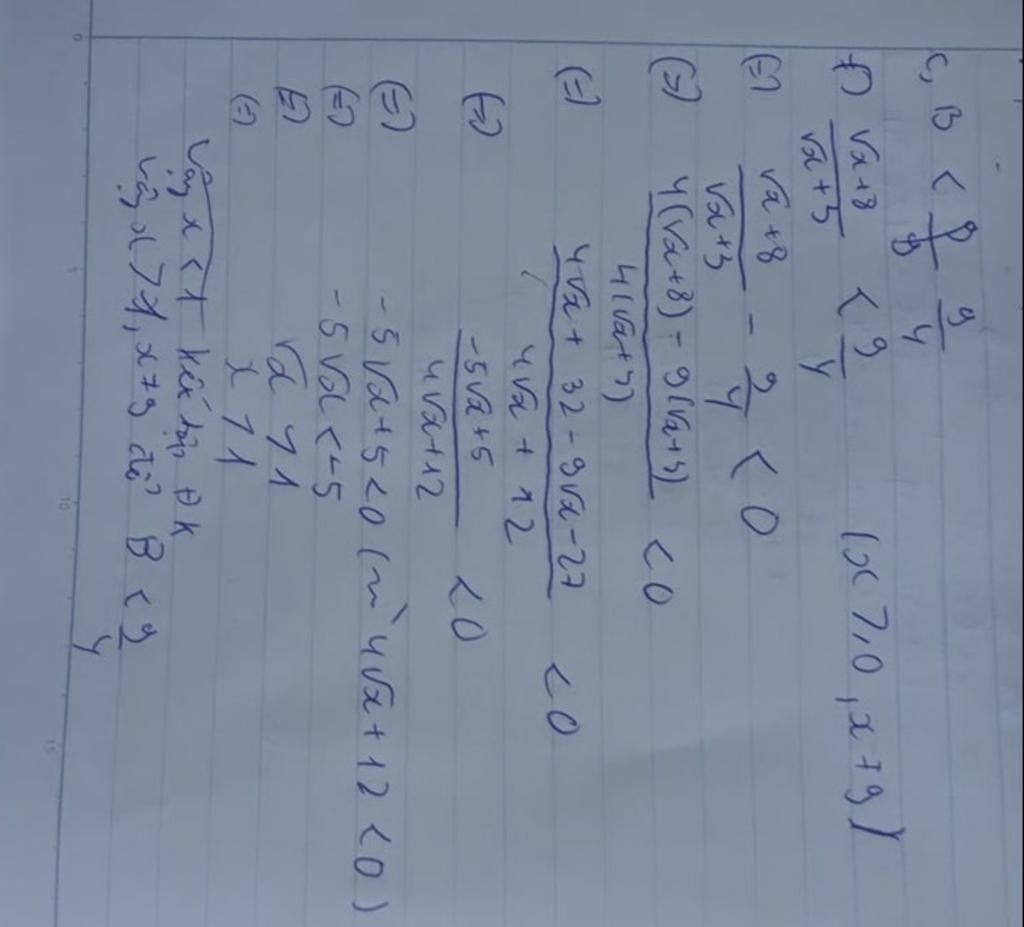 c, B < 9/4
⇔ √x+8/√x+3 < 9/4 (x ⩾ 0, x ≠ 9)
⇔ √x+8/√x+3 - 9/4 < 0
⇔ 4(√x+8) - 9(√x+3)/4(√x+3) < 0
⇔ 4√x + 32 - 9√x - 27/4√x + 12 < 0
⇔ -5√x+5/4√x+12 < 0
⇔ -5√x+5 < 0 (vì 4√x+12 < 0)
⇔ -5√x < -5
⇔ √x > 1
⇔ x > 1
Vậy x < 1 kết hợp ĐK
Vậy x > 1, x ≠ 9 để B < 9/4
0
5
10
15